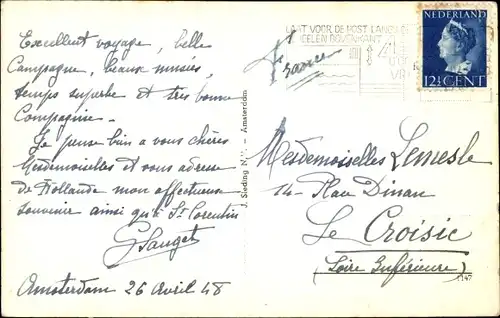 Excellent voyage, belle
Campagne, beaux musées,
temps superbe et très bonne
Compagnie.
Je pense bien a vous chères
Mesdemoiselles et vous adresse
de Hollande mon affectueux
souvenir ainsi qu'à St Corentin
Amsterdam 26 Avril 48
J. Sleding N.V. - Amsterdam
France
LAAT VOOR DE POST
BOVENKANT
NEDERLAND
12½ CENT
Mesdemoiselles Lemesle
14 - Place Dinan
Le Croisic
(Loire Inférieure)